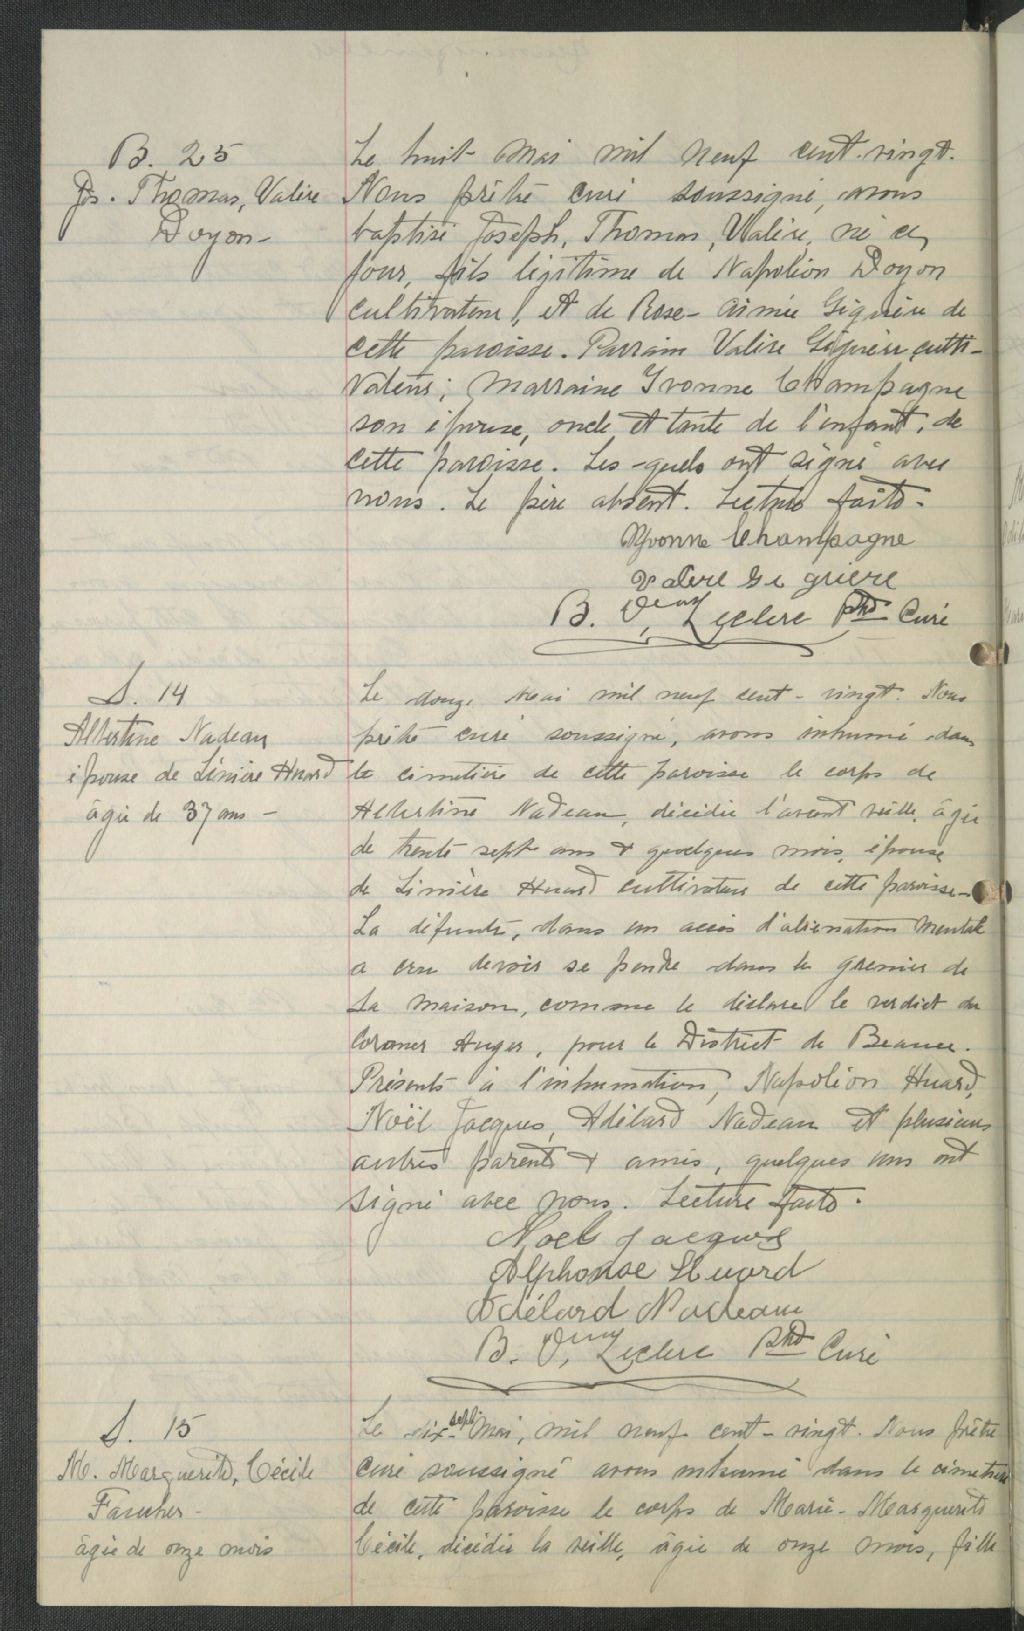 B. 25
Jos. Thomas, Valère
Doyon -
Le huit Mai mil neuf cent-vingt.
Nous prêtre curé soussigné, avons
baptisé Joseph, Thomas, Valère, né ce
jour, fils légitime de Napoléon Doyon
cultivateur, et de Rose-Aimée Giguère de
cette paroisse. Parrain Valère Giguère culti-
vateur; Marraine Yvonne Champagne
son épouse, oncle et tante de l'enfant, de
cette paroisse. Les-quels ont signé avec
nous. Le père absent. Lecture faite.
Yvonne Champagne
Valere Gi guere
B. Leclerc Ptre Curé
S. 14
Albertine Nadeau
épouse de Linière Huard
âgée de 37 ans -
Le douze Mai mil neuf cent-vingt. Nous
prêtre curé soussigné, avons inhumé dans
le cimetière de cette paroisse le corps de
Albertine Nadeau, décédée l'avant veille, âgée
de trente sept ans & quelques mois, épouse
de Linière Huard cultivateur de cette paroisse-
La défunte, dans un accès d'alienation mentale
a cru devoir se pendre dans le grenier de
la maison, comme le déclare le verdict du
Coroner Auger, pour le District de Beauce.
Présents à l'inhumation, Napoléon Huard,
Noël Jacques, Adélard Nadeau et plusieurs
autres parents & amis, quelques uns ont
signé avec nous. Lecture faite.
Noel Jacques
Alphonse Huard
Adélard Nadeau
B. Leclerc Ptre Curé
S. 15
M. Marguerite, Cécile
Faucher -
âgée de onze mois
Le dix-sept Mai, mil neuf cent-vingt. Nous prêtre
curé soussigné avons inhumé dans le cimetière
de cette paroisse le corps de Marie-Marguerite
Cécile, décédée la veille, âgée de onze mois, fille